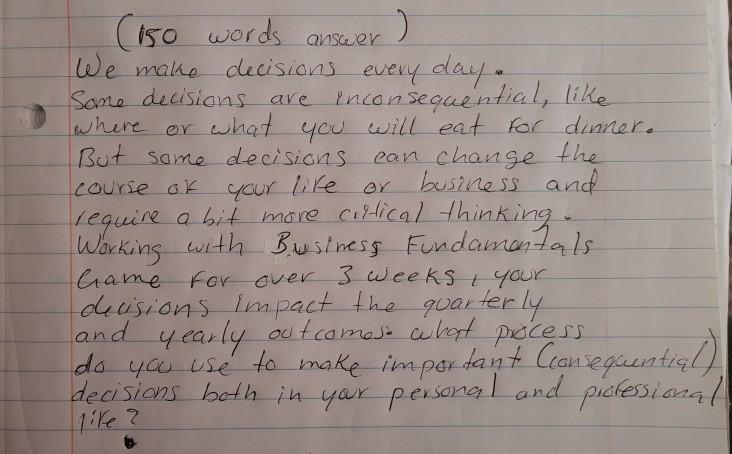 (150 words answer)
We make decisions every day.
Some decisions are inconsequential, like
where or what you will eat for dinner.
But some decisions can change the
course of your life or business and
require a bit more critical thinking.
Working with Business Fundamentals
Game for over 3 weeks, your
decisions impact the quarterly
and yearly outcomes. what process
do you use to make important (consequential)
decisions both in your personal and professional
life?